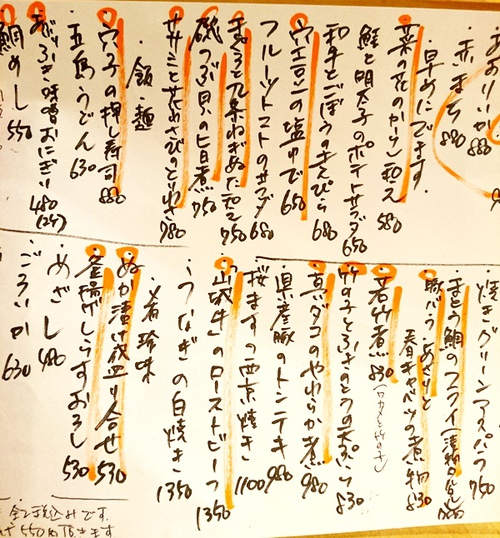 あおりいか
赤まち 880
早めにでます。
・菜の花のからし和え 580
・鮭と明太子のポテトサラダ 650
・和牛とごぼうのきんぴら 680
・空豆の塩ゆで 650
・フルーツトマトのサラダ 680
・まぐろと九条ねぎぬた和え 950
・磯つぶ貝の旨煮 750
・ササミと花わさびのとりわさ 980
飯・麺
・穴子の押し寿司 880
・五島うどん 630
・あぶら味噌おにぎり 480
鯛めし 550
・焼きグリーンアスパラ 750
鯛のフライ
・豚バラ、あさりと
春キャベツの煮物 830
・若竹煮 830 (ワカメと竹の子)
・竹の子とふきのとうの天ぷら 830
・真ダコのやわらか煮 980
・県産豚のトンテキ 980
・桜ますの西京焼き 1100
・山城牛のローストビーフ 1350
・うなぎの白焼き 1350
・肴 珍味
・ぬか漬け盛り合せ 530
・釜揚げしらすおろし 530
・めざし 480
・ごろいか 630
全て税込みです。
550円頂きます